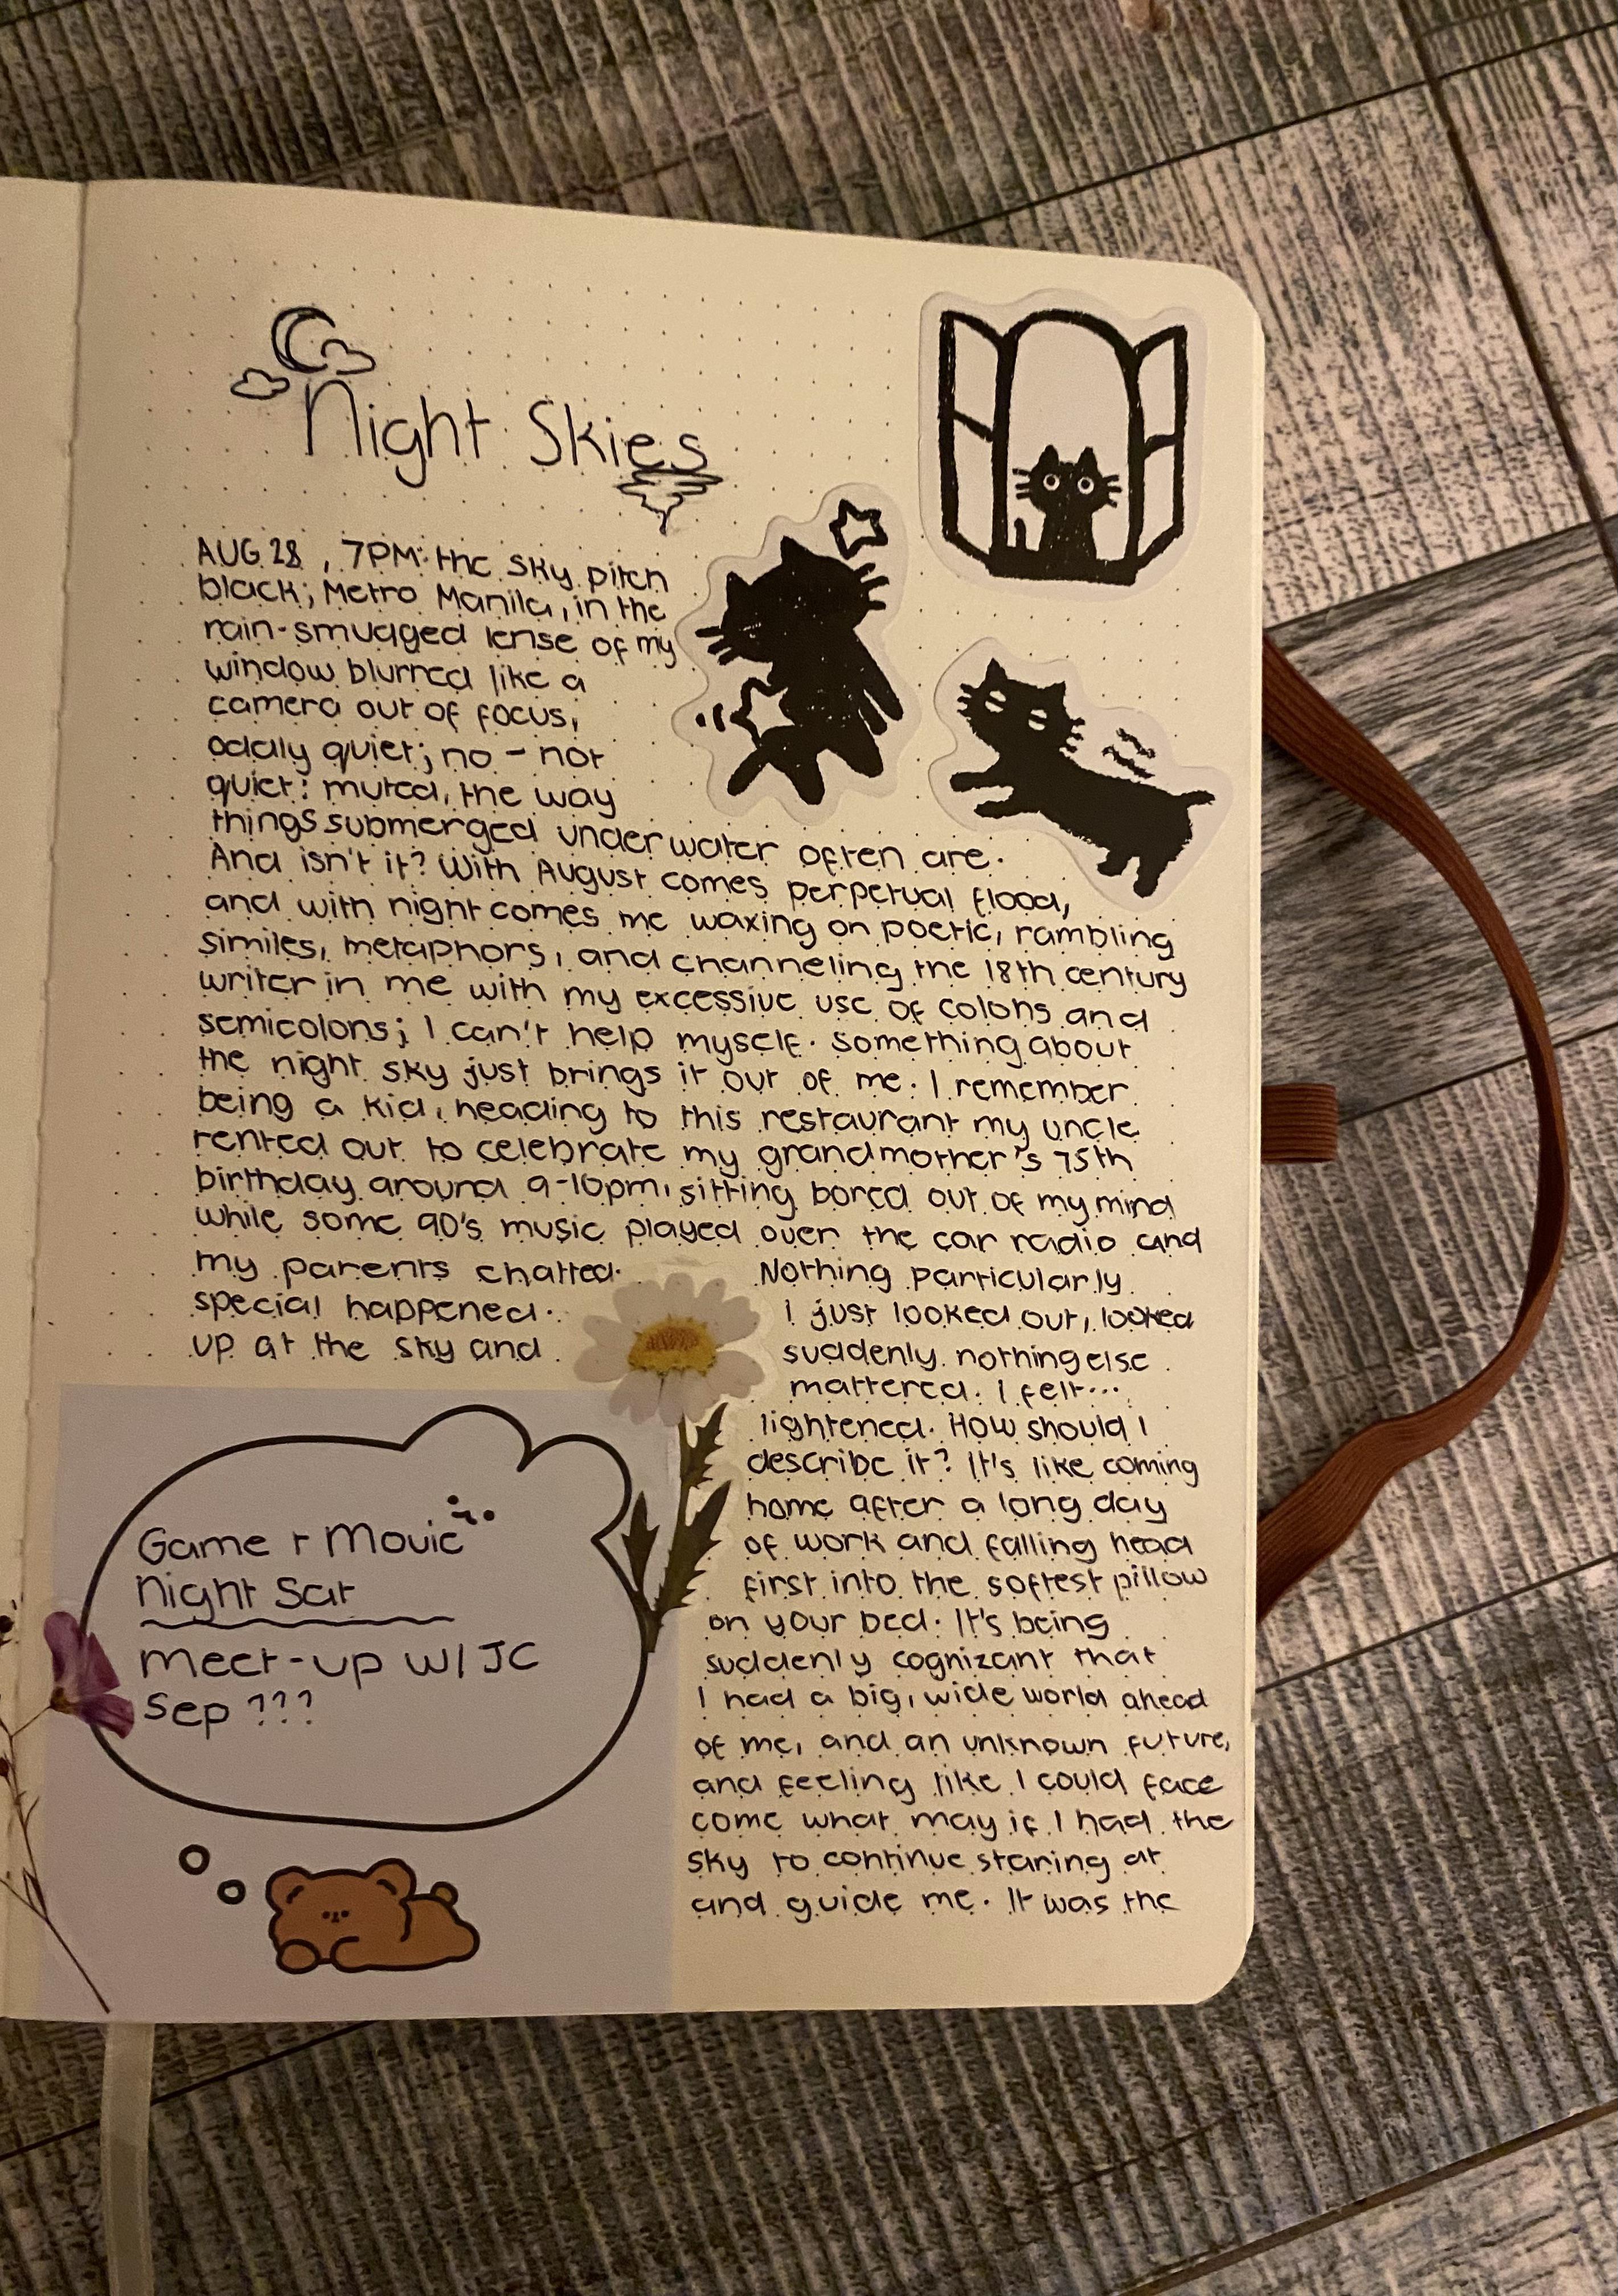 Night Skies
AUG 28, 7PM: the sky pitch
black; Metro Manila, in the
rain-smudged lense of my
window blurred like a
camera out of focus,
oddly quiet; no - not
quiet: muted, the way
things submerged underwater often are.
And isn't it? With August comes perpetual flood,
and with night comes me waxing on poetic, rambling
similes, metaphors, and channeling the 18th century
writer in me with my excessive use of colons and
semicolons; I can't help myself. Something about
the night sky just brings it out of me. I remember
being a kid, heading to this restaurant my uncle
rented out to celebrate my grandmother's 75th
birthday around 9-10pm, sitting bored out of my mind
while some 90's music played over the car radio and
my parents chatted. Nothing particularly
special happened. I just looked out, looked
up at the sky and suddenly nothing else
mattered. I felt...
lightened. How should I
describe it? It's like coming
home after a long day
of work and falling head
first into the softest pillow
on your bed. It's being
suddenly cognizant that
I had a big, wide world ahead
of me, and an unknown future,
and feeling like I could face
come what may if I had the
sky to continue staring at
and guide me. It was the
Game + Movie
Night Sat
Meet-up w/ JC
Sep ???